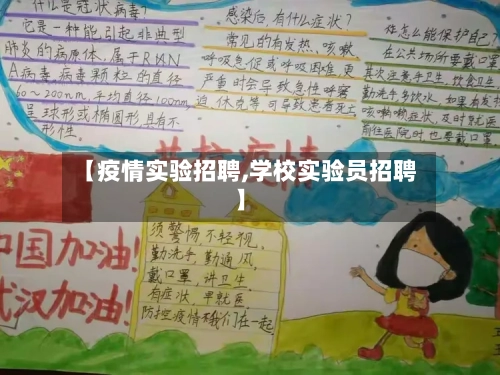 什么是冠状病毒?
它是一种能引起非典型
肺炎的病原体,属于RNA
A病毒,病毒颗粒的直径
60~200nm,平均直径100nm,
呈球形或椭圆形,具有不
形性。
感染后,有什么症状?
常见的有发热、咳嗽
呼吸急促或呼吸困难,更
严重时会导致急性呼窘
迫、休克等可导致患者死亡
怎么能保护自己?
在公共场所要戴口罩
其次注意手卫生,饮食卫
勤洗手,多饮水,如果有发
咳嗽症状,及时就医
前往医院时也是戴口罩
共抗疫情
【疫情实验招聘,学校实验员招聘
】
中国加油!
武汉加油!
须警惕不轻视、
勤洗手,勤通风、
戴口罩、讲卫生、
有症状、早就医
防控疫情我们在一起